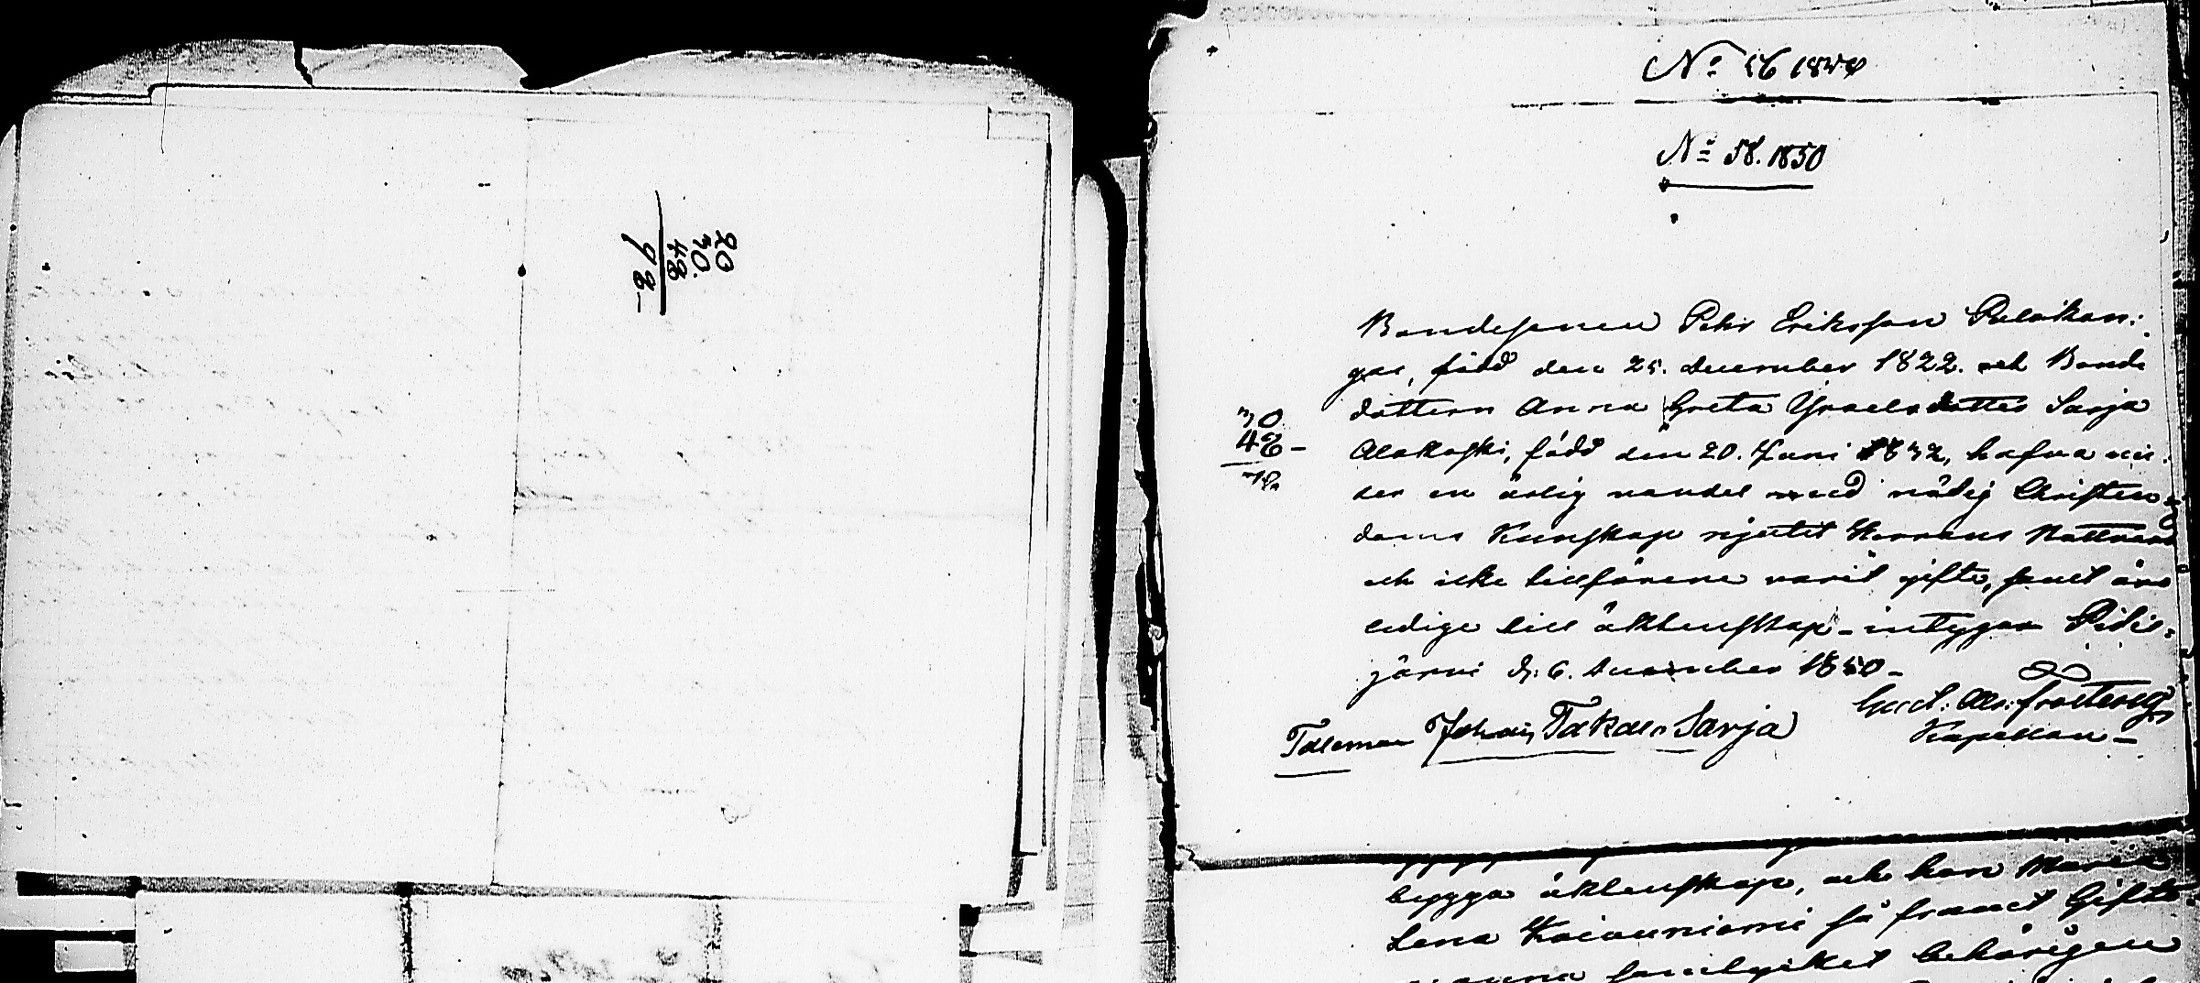 20
30.
48
98-
No 56 18
No 58. 1850
Bondesonen Pehr Eriksson Palokan:
gas, född den 25. December 1822. och Bonde
dottern Anna Greta Ysraelsdotter Sarja
30
48-
78
Alakoski, född den 20. Juni 1832, hafva un:
der en ärlig vandel med nödig Christen
doms Kunskap njutit Herrans Nattvard
och icke tillförene varit gifte, samt äro
ledige till äktenskap - intygar Pidis:
järvi d. 6. December 1850 -
Gust: Alb: Frosterus
Kapellan -
Taleman Johan Takalo Sarja
bygga äktenskap, och hon Maria
Lena Koivuniemi få framet Gifto
samtycket behörigen